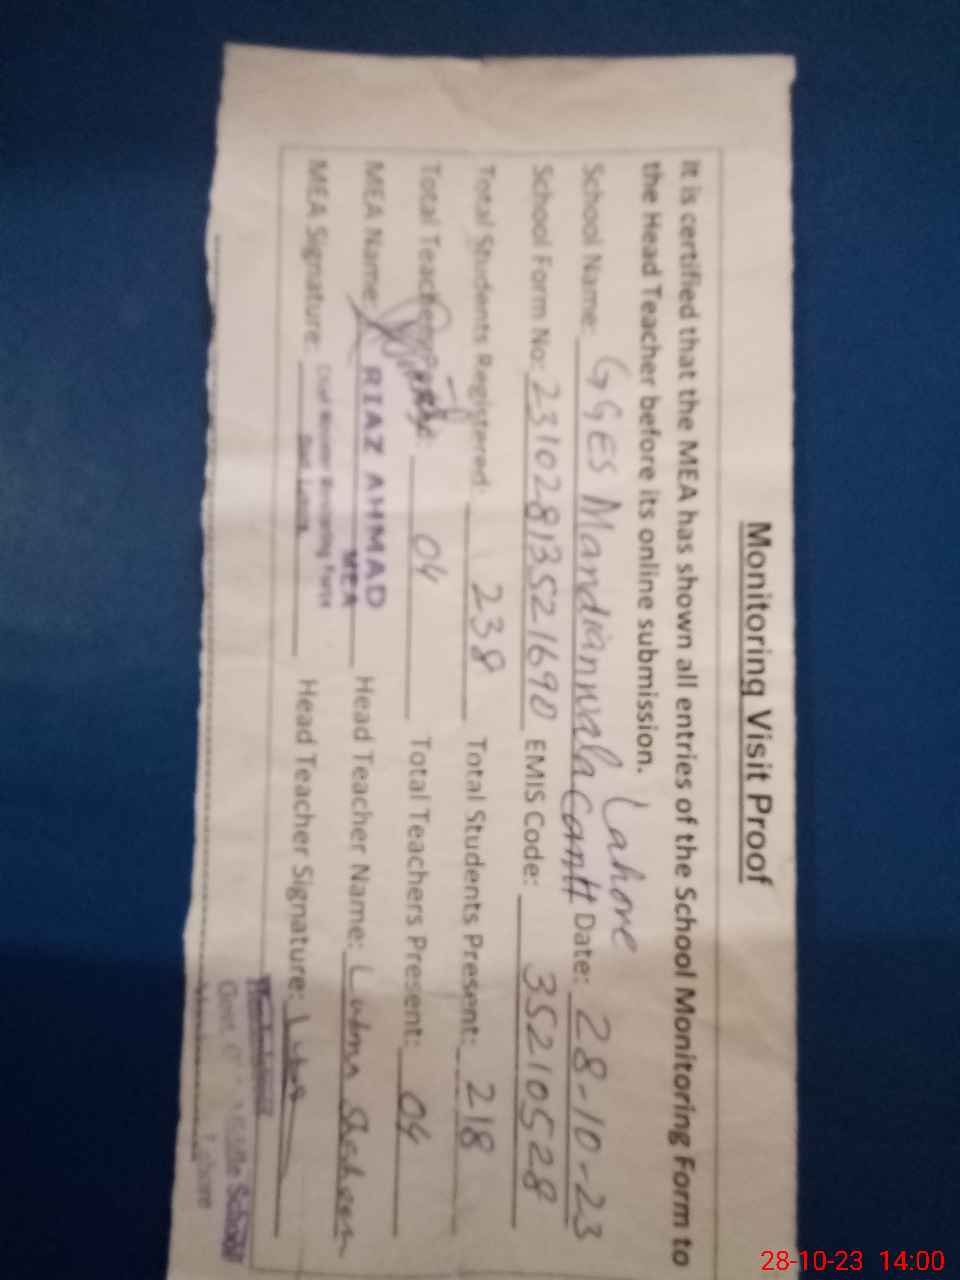 Monitoring Visit Proof
It is certified that the MEA has shown all entries of the School Monitoring Form to
the Head Teacher before its online submission.
Lahore
School Name: GGES Mandianwala Cantt Date: 28-10-23
School Form No: 23102813521690 EMIS Code: 35210528
Total Students Registered: 238 Total Students Present: 218
Total Teachers 04 Total Teachers Present: 04
MEA Name: RIAZ AHMAD Head Teacher Name: Lubna Shaheen
MEA
MEA Signature: Head Teacher Signature: Lubna
Govt. School
Lahore
28-10-23 14:00